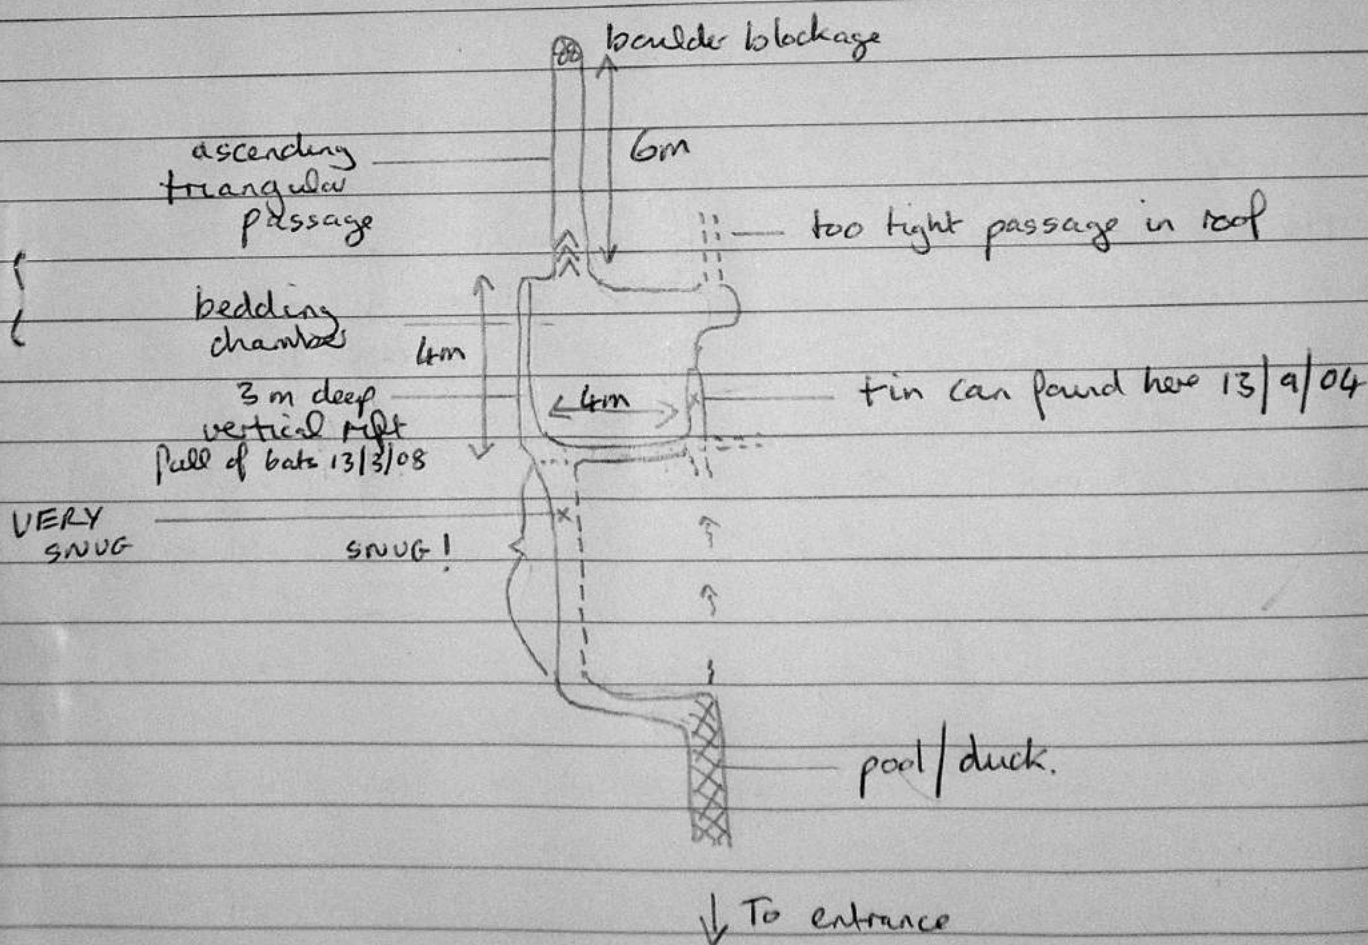 boulder blockage
6m
ascending
triangular
passage
too tight passage in roof
bedding
chamber
4m
3m deep
vertical rift
full of bats 13/3/08
4m
tin can found here 13/9/04
VERY
SNUG
SNUG!
pool/duck.
To entrance